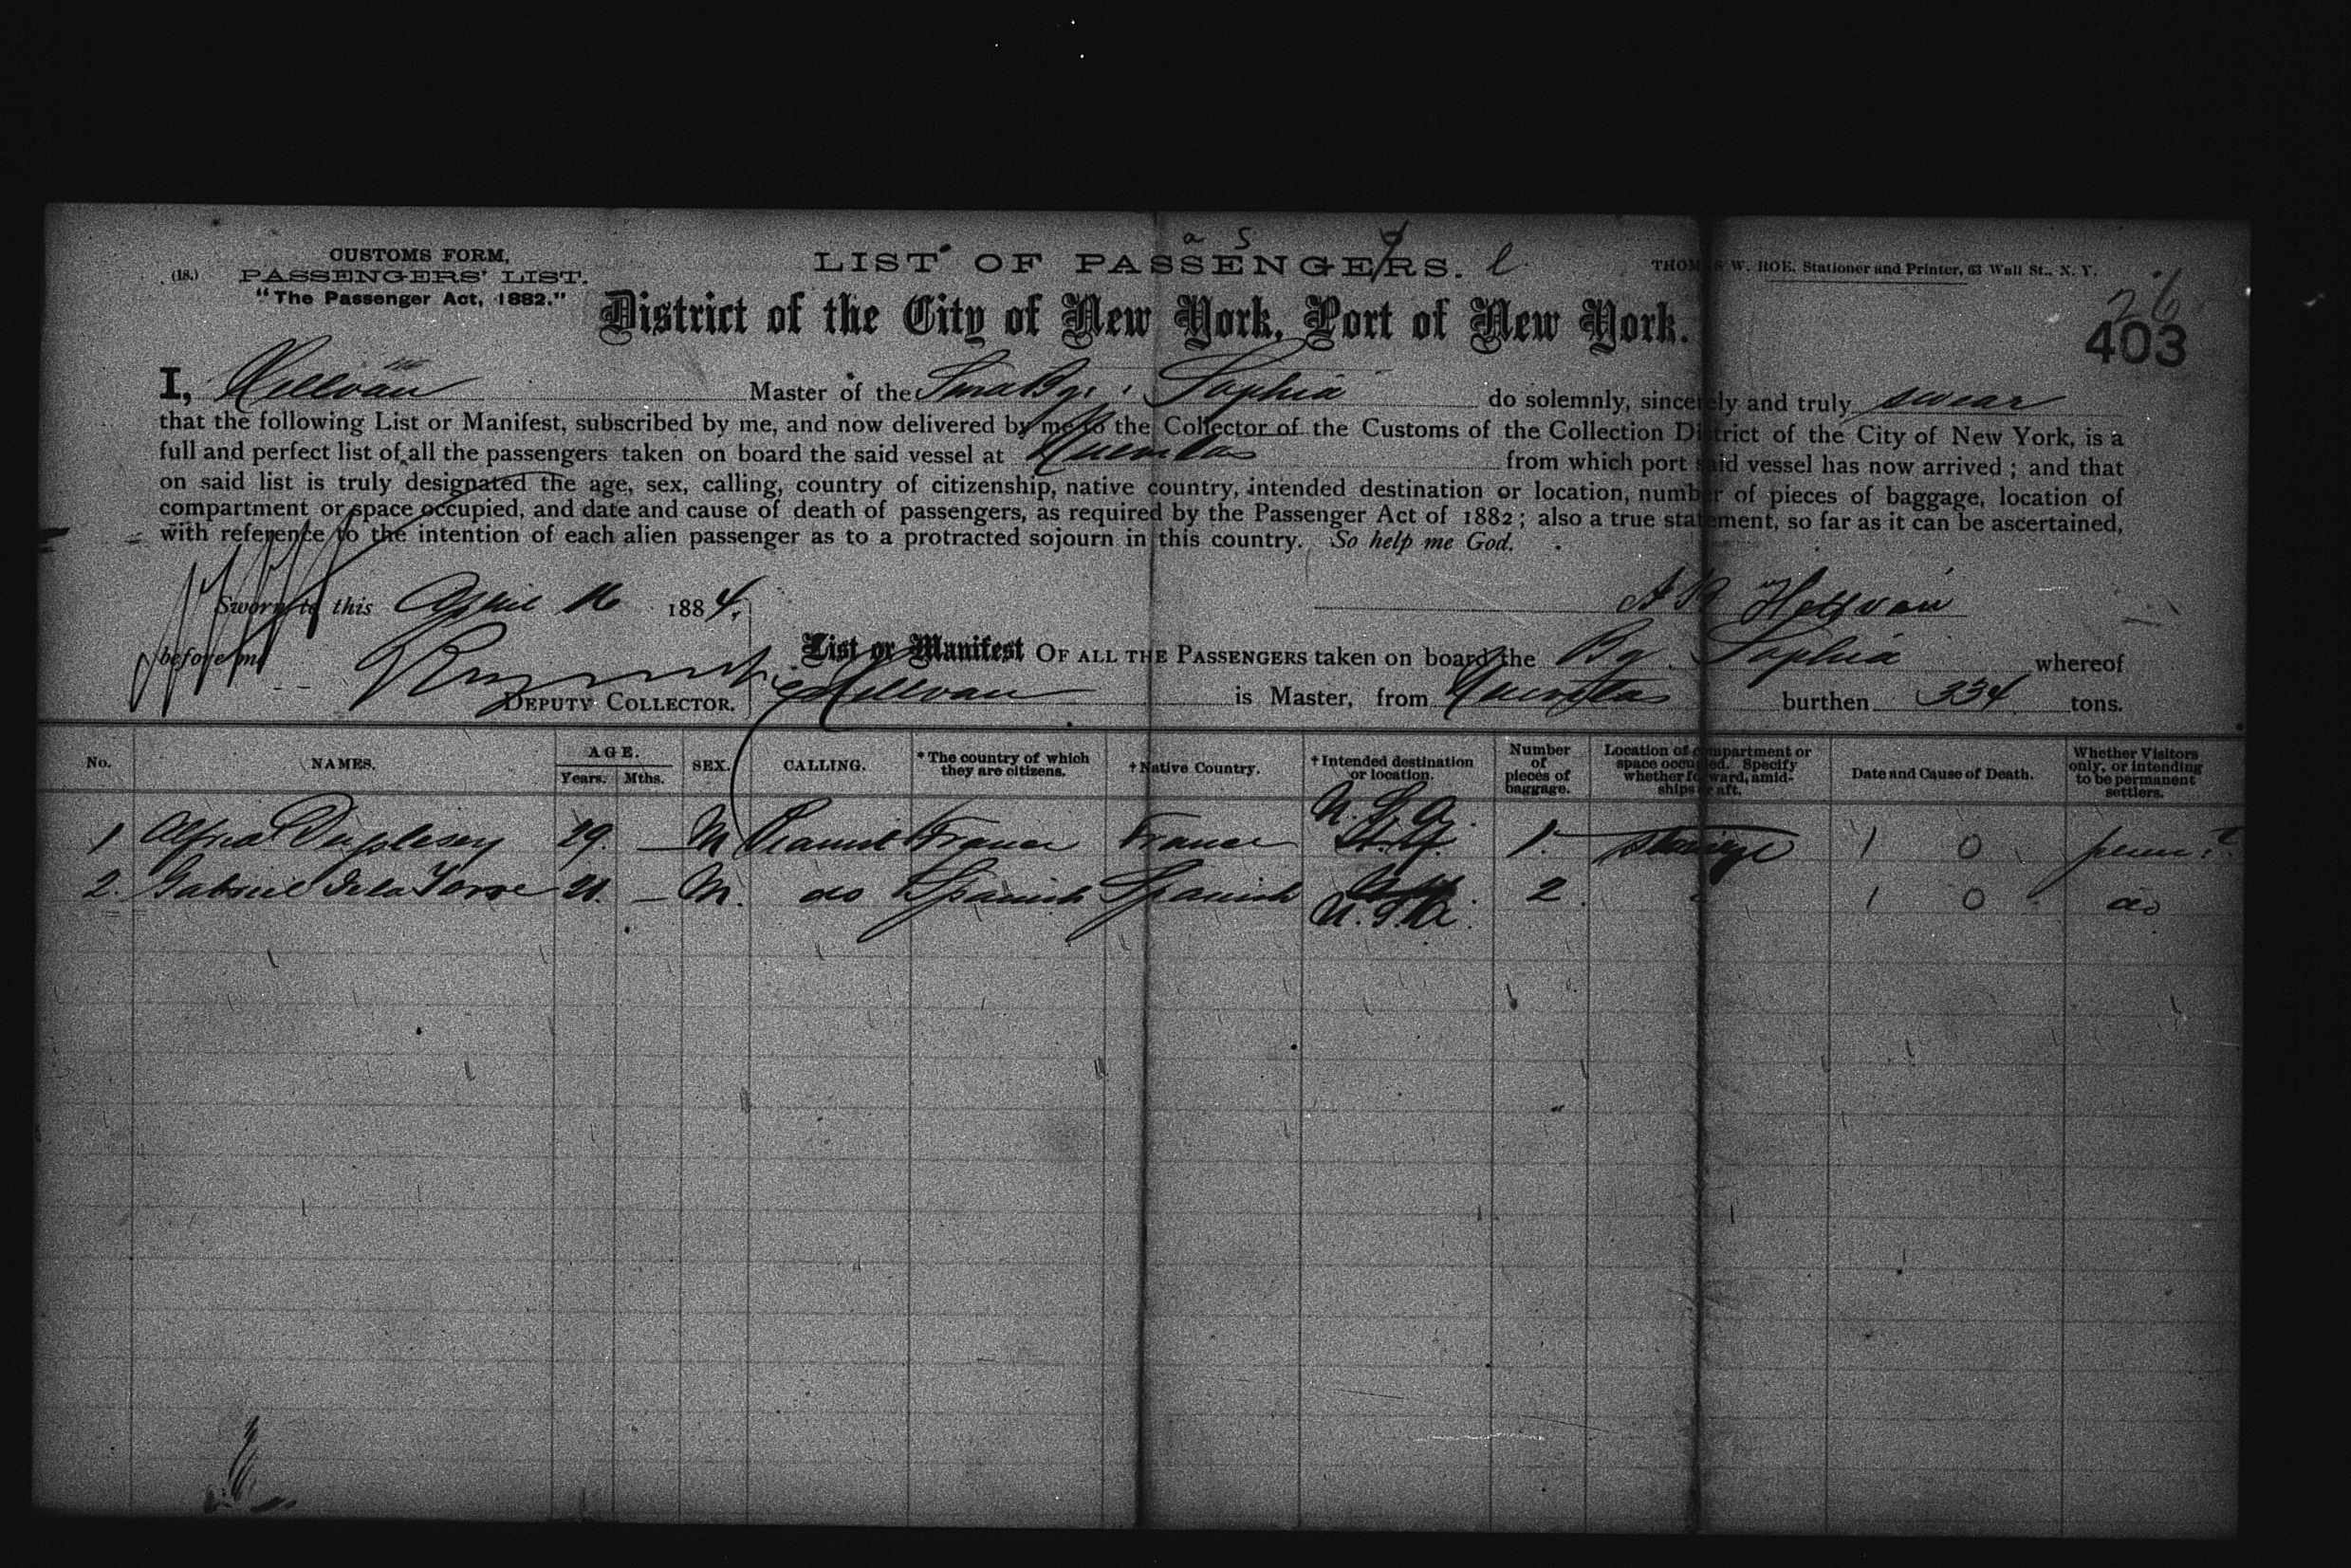 CUSTOMS FORM,
(18.) PASSENGERS' LIST.
"The Passenger Act, 1882."
a s
LIST OF PASSENGERS. l
THOMAS W. ROE, Stationer and Printer, 63 Wall St., N. Y.
District of the City of New York, Port of New York.
26
403
I, Master of the Sophia do solemnly, sincerely and truly swear
that the following List or Manifest, subscribed by me, and now delivered by me to the Collector of the Customs of the Collection District of the City of New York, is a
full and perfect list of all the passengers taken on board the said vessel at from which port said vessel has now arrived ; and that
on said list is truly designated the age, sex, calling, country of citizenship, native country, intended destination or location, number of pieces of baggage, location of
compartment or space occupied, and date and cause of death of passengers, as required by the Passenger Act of 1882 ; also a true statement, so far as it can be ascertained,
with reference to the intention of each alien passenger as to a protracted sojourn in this country. So help me God.
Sworn to this April 16 1884.
before me
DEPUTY COLLECTOR.
List or Manifest OF ALL THE PASSENGERS taken on board the Bg. Sophia whereof
is Master, from burthen 334 tons.
No. NAMES. AGE. Years. Mths. SEX. CALLING. * The country of which they are citizens. † Native Country. † Intended destination or location. Number of pieces of baggage. Location of compartment or space occupied. Specify whether forward, amidships or aft. Date and Cause of Death. Whether Visitors only, or intending to be permanent settlers.
1 Alfred Duplesey 29. — M France France U.S.A. 1. Steerage 1 0
2. Gabriel de la Torre 21. — M. do Spanish Spanish U.S.A. 2 1 0 do